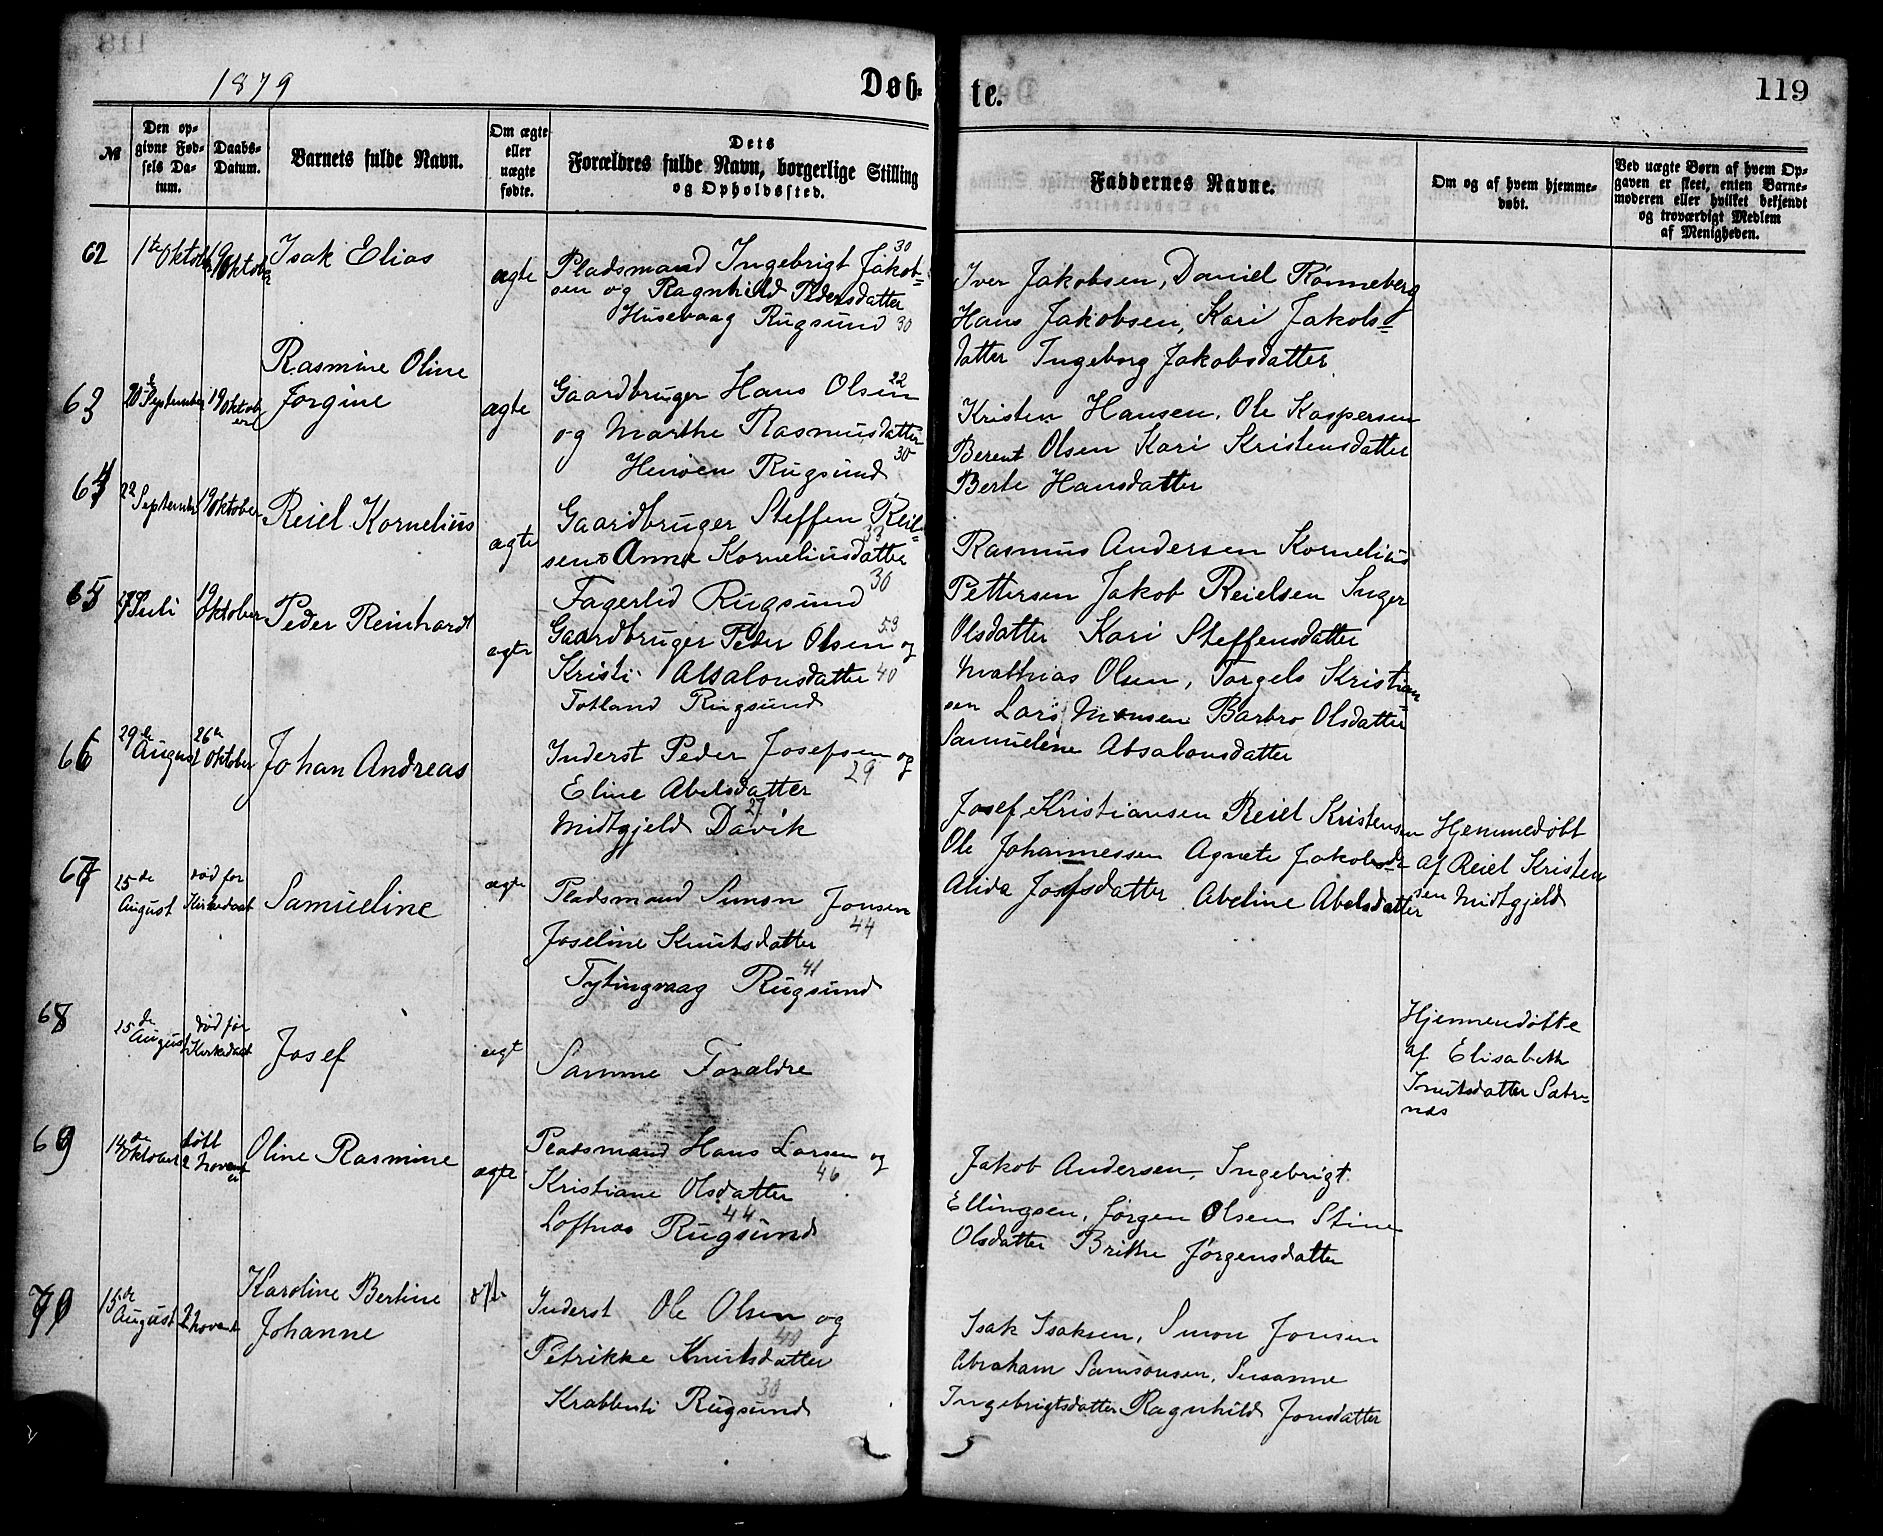 1879
Døb-
te.
119
№
Den op-
givne Fød-
sels Da-
tum.
Daabs-
Datum.
Barnets fulde Navn.
Om ægte
eller
uægte
fødte.
Dets
Forældres fulde Navn, borgerlige Stilling
og Opholdssted.
Faddernes Navne.
Om og af hvem hjemme-
døbt.
Ved uægte Børn af hvem Op-
gaven er skeet, enten Barne-
moderen eller hvilket bekjendt
og troværdigt Medlem
af Menigheden.
62
1te Oktob
19 Oktob
Isak Elias
ægte
Pladsmand Ingebrigt Jakob= 30
sen og Ragnhild Pedersdatter
Husevaag Rugsund 30
Iver Jakobsen, Daniel Rønneberg
Hans Jakobsen, Kari Jakobs=
datter Ingeborg Jakobsdatter
63
20 September
19 Oktob
er
Rasmine Oline
Jorgine
ægte
Gaardbruger Hans Olsen 22
og Marthe Rasmusdatter
30
Henøen Rugsund
Kristen Hansen, Ole Kaspersen
Berent Olsen Kari Kristensdatter
Berte Hansdatter
64
22 September
19 Oktober
Reiel Kornelius
ægte
Gaardbruger Steffen Reiel=
33
sen Anne Korneliusdatter
30
Fagerlid Rugsund
Rasmus Andersen Kornelius
Pettersen Jakob Reielsen Inger
Olsdatter Kari Steffensdatter
65
Juli
19
Oktober
Peder Reinhardt
ægte
Gaardbruger Peder Olsen og 53
Kristi Absalonsdatter 40
Totland Rugsund
Mathias Olsen, Torgels Kristian
sen Lars Monsen Barbro Olsdatter
Samueline Absalonsdatter
66
29de
August
26de
Oktober
Johan Andreas
Inderst Peder Josefsen og
29
Eline Abelsdatter
27
Midtgjeld Davik
Josef Kristiansen Reiel Kristensen
Ole Johannessen Agnete Jakobsdr
Alida Josefsdatter Abeline Abelsdatter
Hjemmedøbt
af Reiel Kristen
sen Midtgjeld
67
25de
August
død før
Kirkedaab
Samueline
ægte
Pladsmand Simon Jonsen
44
Joseline Knutsdatter
41
Tytingvaag Rugsund
68
25de
August
død før
Kirkedaab
Josef
ægt
Samme Forældre
Hjemmedøbte
af Elisabeth
Knutsdatter Satre=
nes
69
14de
Oktober
døbt
2 Novem
er
Oline Rasmine
ægte
Pladsmand Hans Larsen og
46
Kristiane Olsdatter
44
Loftnas Rugsund
Jakob Andersen, Ingebrigt
Ellingsen, Jørgen Olsen Stine
Olsdatter Brithe Jørgensdatter
70
15de
August
2 Novem
Karoline Bertine
Johanne
Inderst Ole Olsen og
40
Petrikke Knutsdatter
30
Krabbesti Rugsund
Isak Isaksen, Simon Jonsen
Abraham Samsonsen, Susanne
Ingebrigtsdatter Ragnhild Jonsdatter